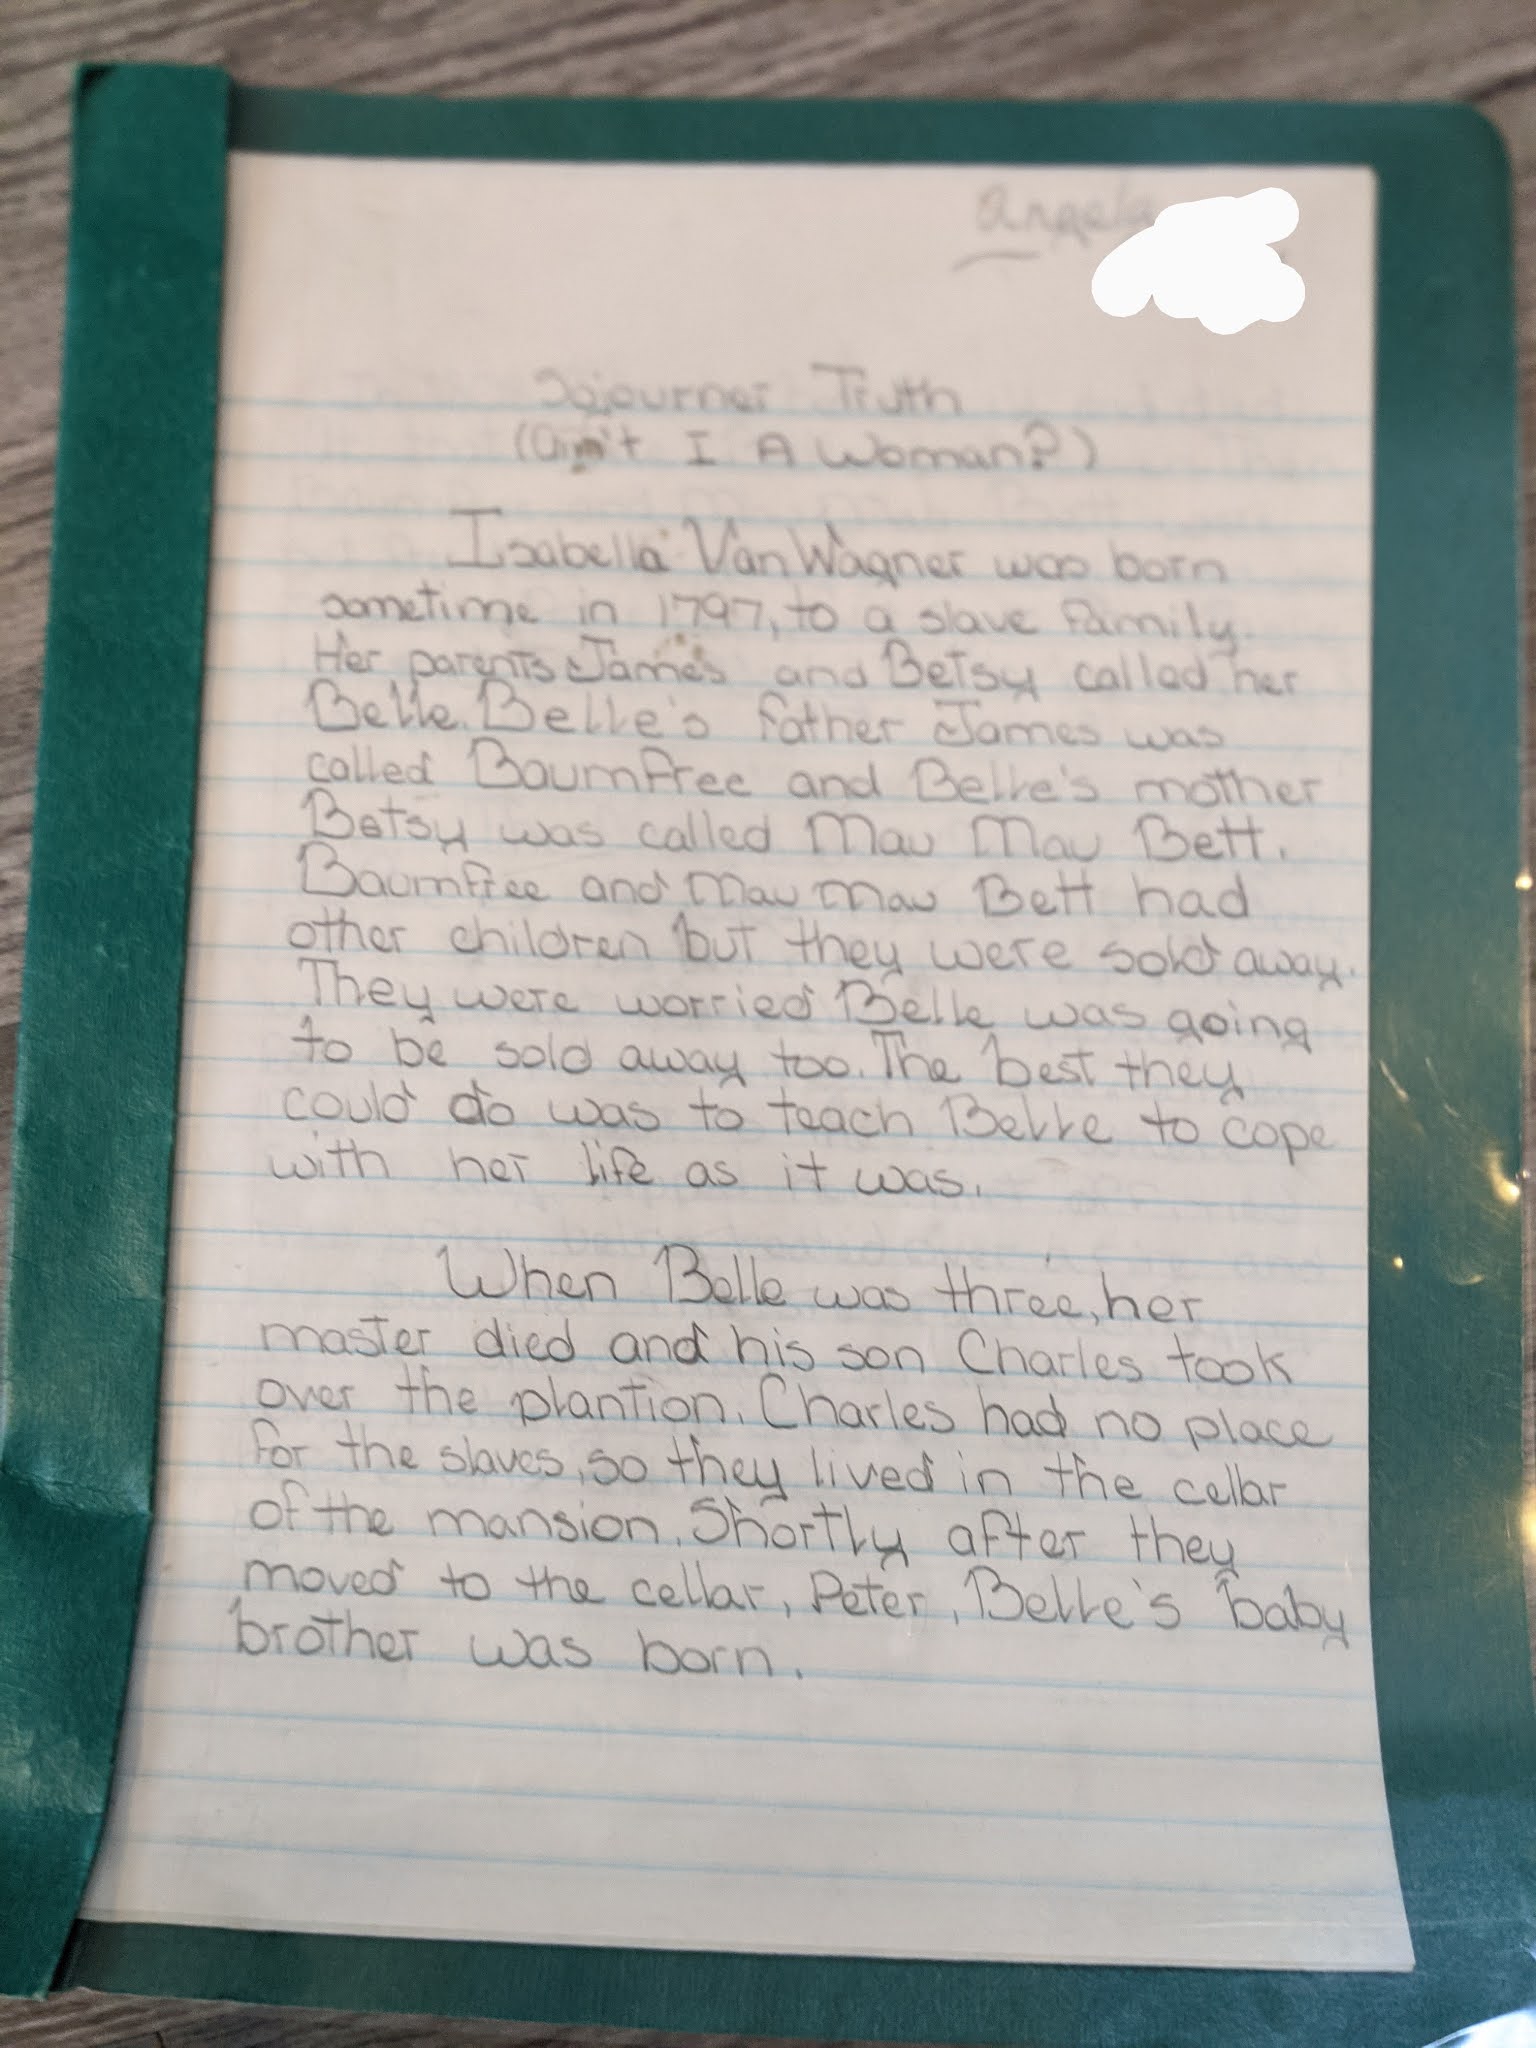 Angela
Sojourner Truth
(Ain't I A Woman?)
Isabella VanWagner was born
sometime in 1797, to a slave family.
Her parents James and Betsy called her
Belle. Belle's father James was
called Baumfree and Belle's mother
Betsy was called Mau Mau Bett.
Baumfree and Mau Mau Bett had
other children but they were sold away.
They were worried Belle was going
to be sold away too. The best they
could do was to teach Belle to cope
with her life as it was.
When Belle was three, her
master died and his son Charles took
over the plantion. Charles had no place
for the slaves, so they lived in the cellar
of the mansion. Shortly after they
moved to the cellar, Peter, Belle's baby
brother was born.